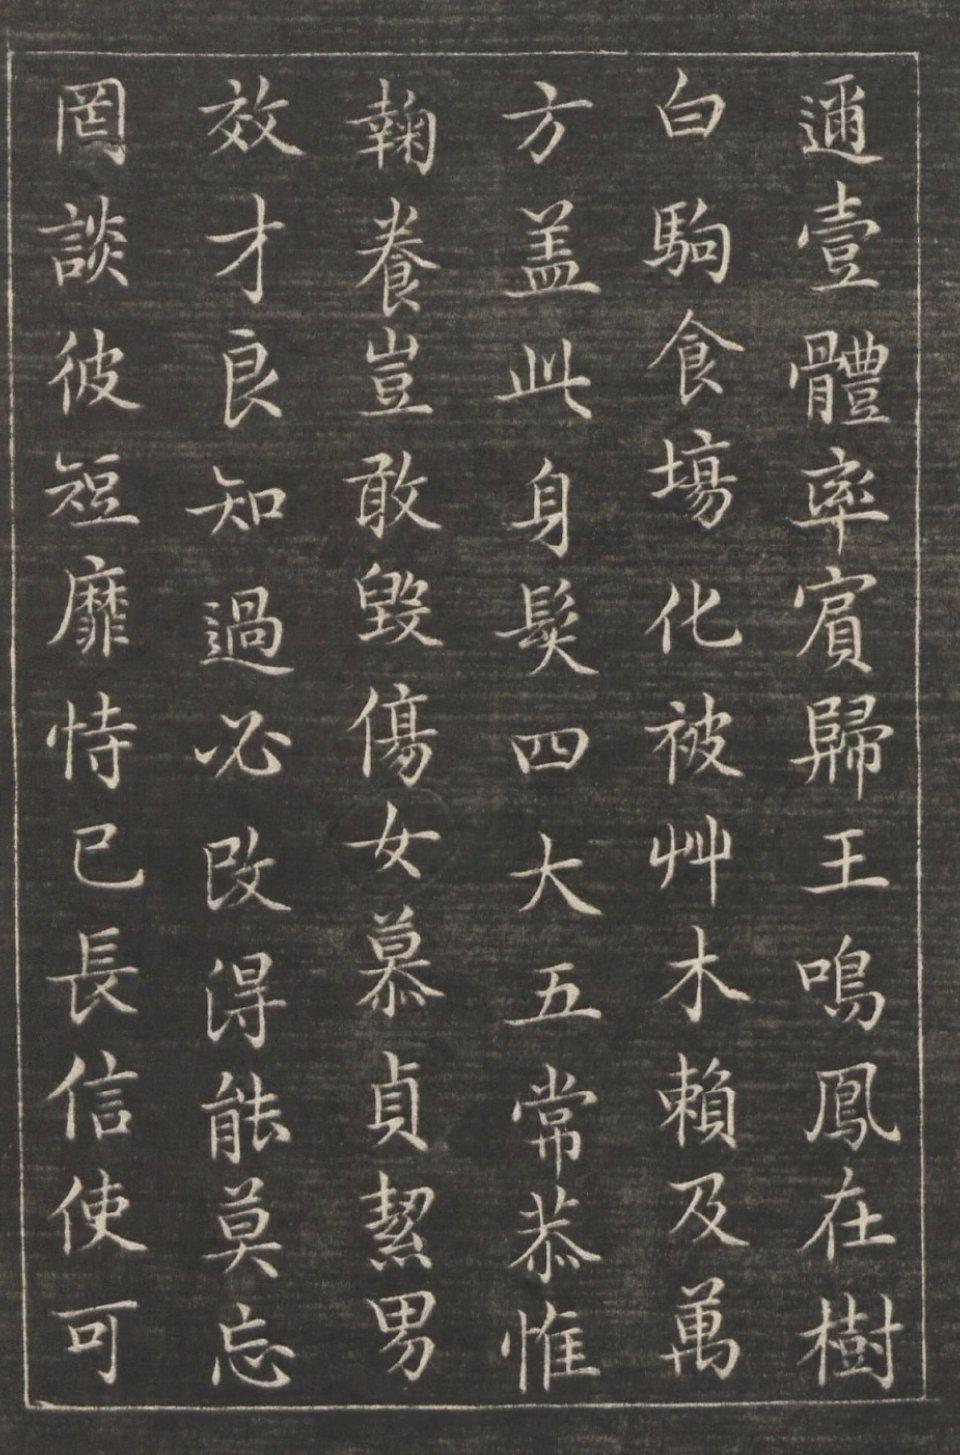 邇壹體率賓歸王鳴鳳在樹
白駒食場化被艸木賴及萬
方盖此身髮四大五常恭惟
鞠養豈敢毀傷女慕貞絜男
效才良知過必改得能莫忘
罔談彼短靡恃已長信使可